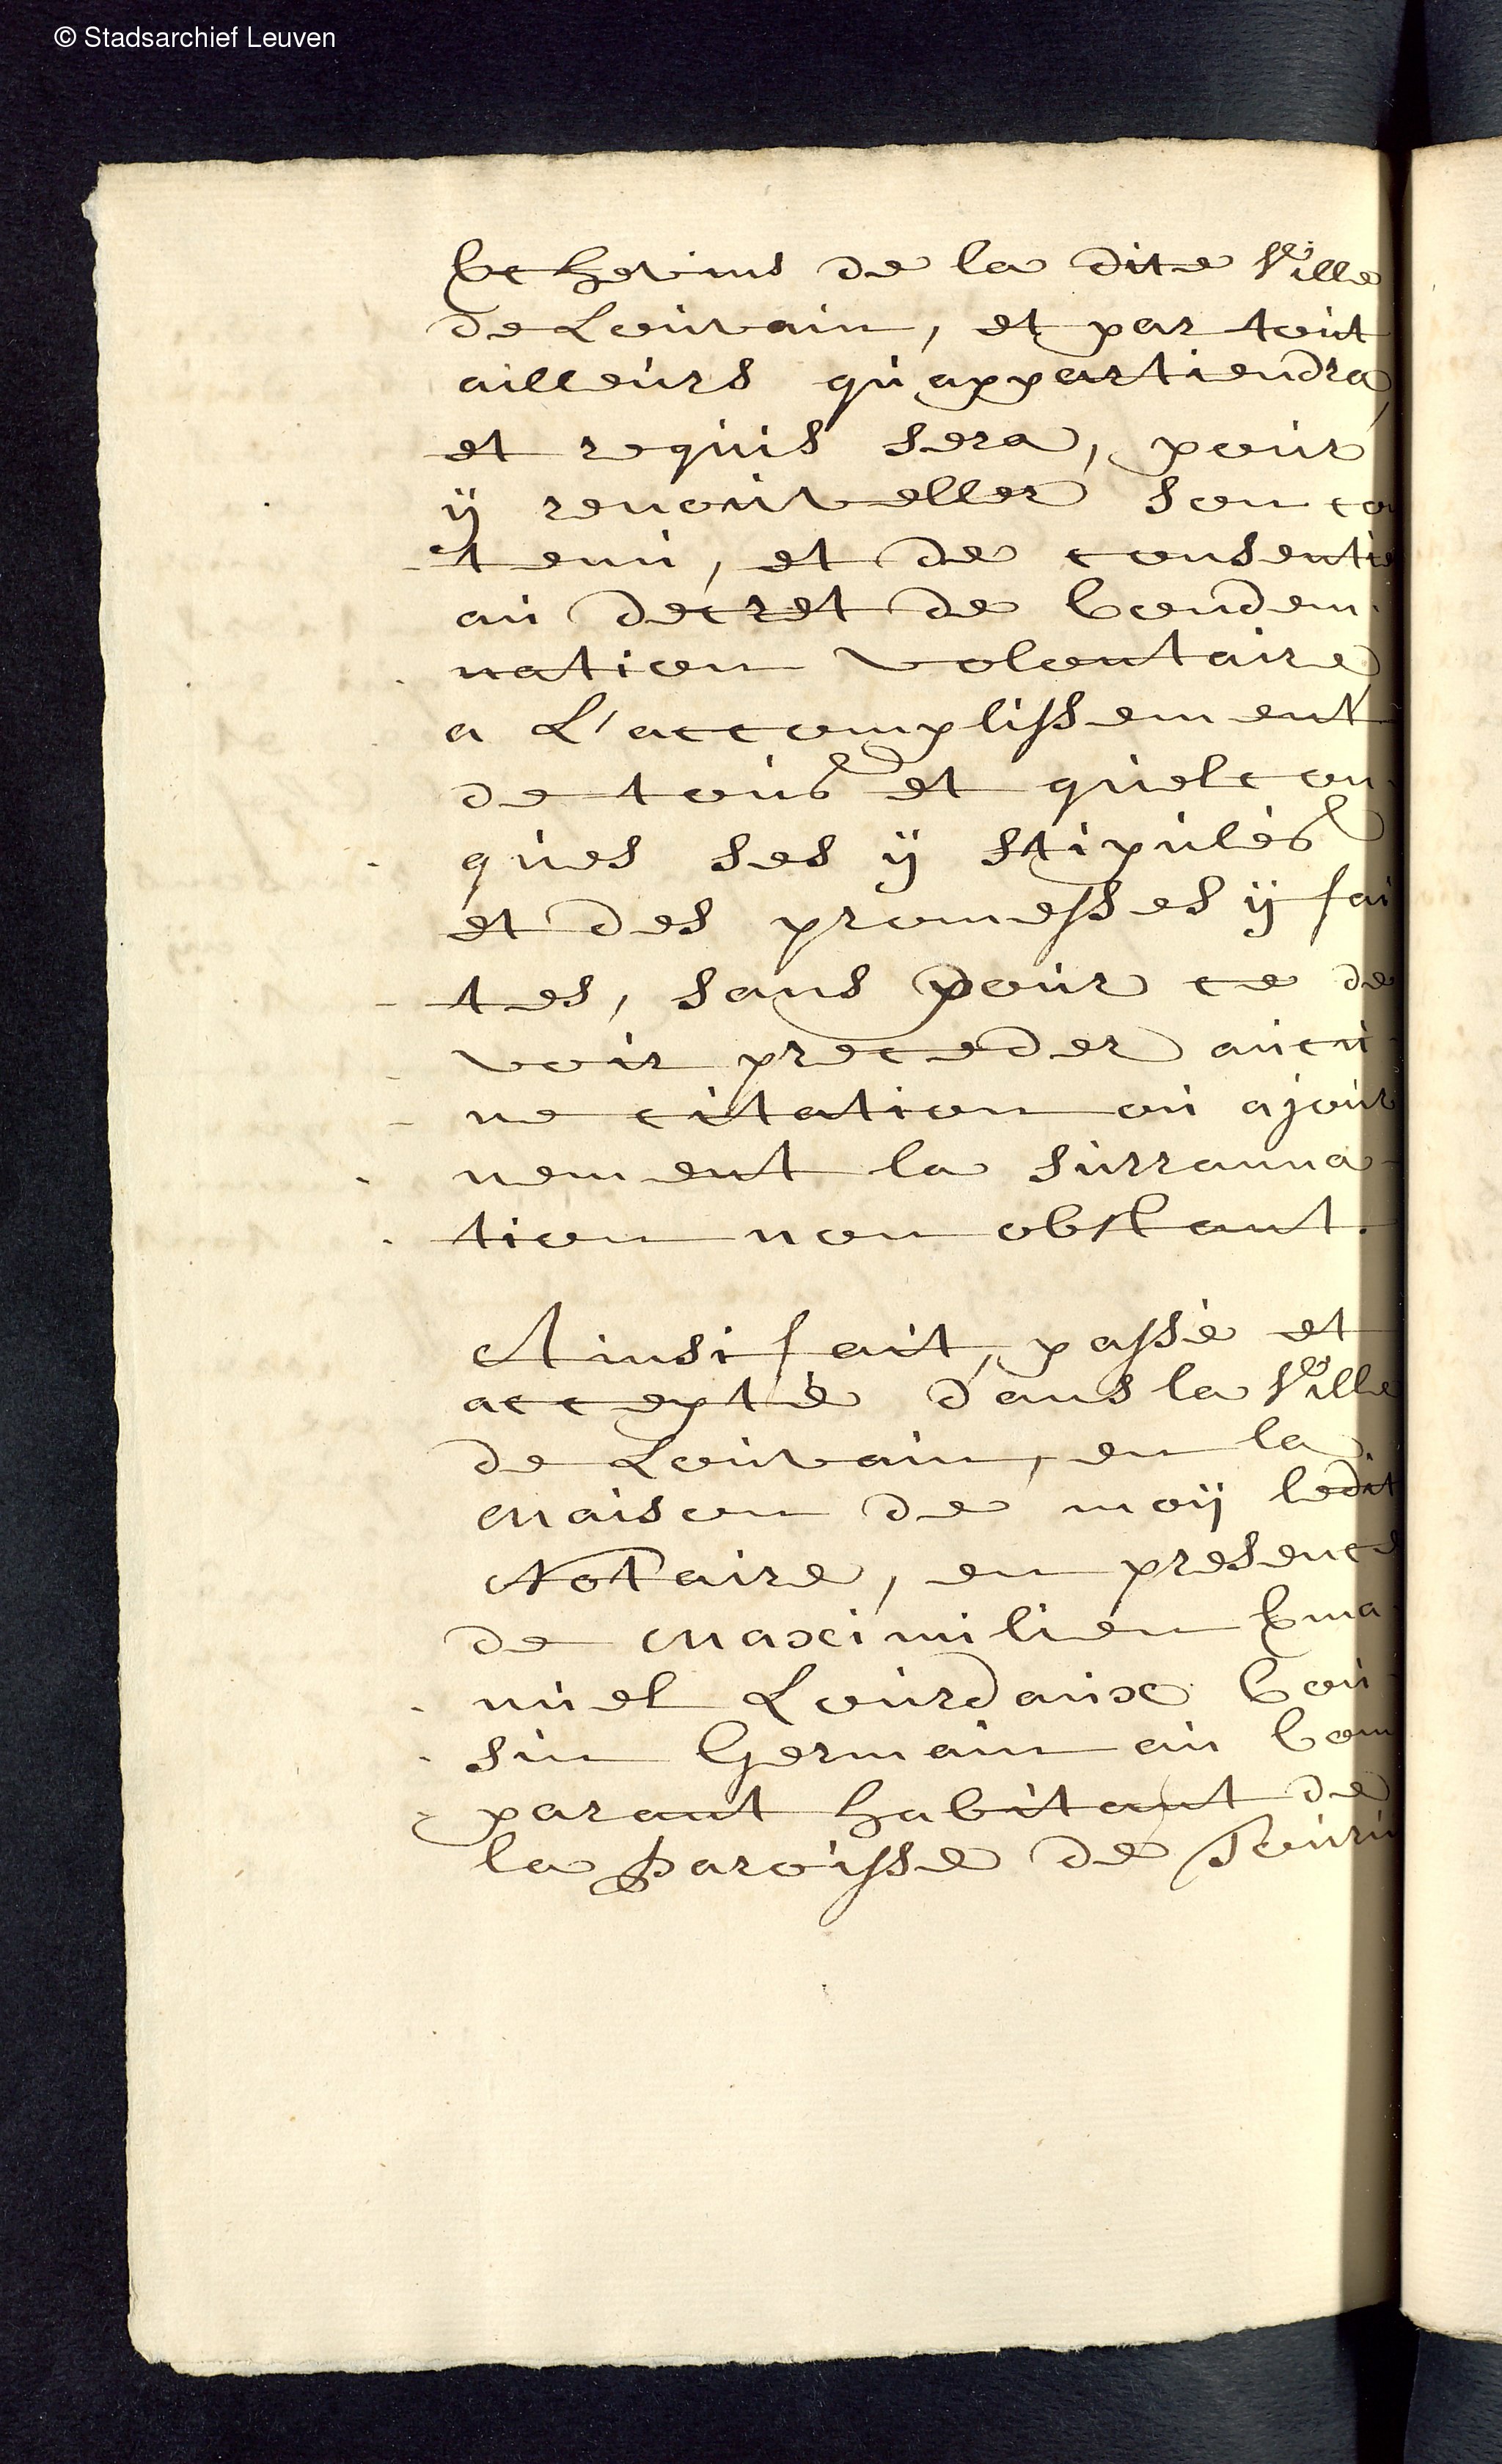 © Stadsarchief Leuven
Echevins de la dite Ville
de Louvain, et par tout
ailleurs qu'appartiendra,
et requis sera, pour
ÿ renouveller son co
tenu, et de consentir
au decret de Condem-
nation volontaire
a L'accomplissement
de tous et quelcon-
ques ses ÿ stipulés
et des promesses ÿ fai
tes, sans pour ce de
voir preceder aucu-
ne citation ou ajour
nement la surranna-
tion non obstant.
Ainsi fait, passé et
accepté dans la Ville
de Louvain, en la
Maison de moÿ ledit
Notaire, en presence
de Maximilien Ema-
nuel Lourdaux Cou-
sin Germain au Com
parant habitant de
la Paroisse de